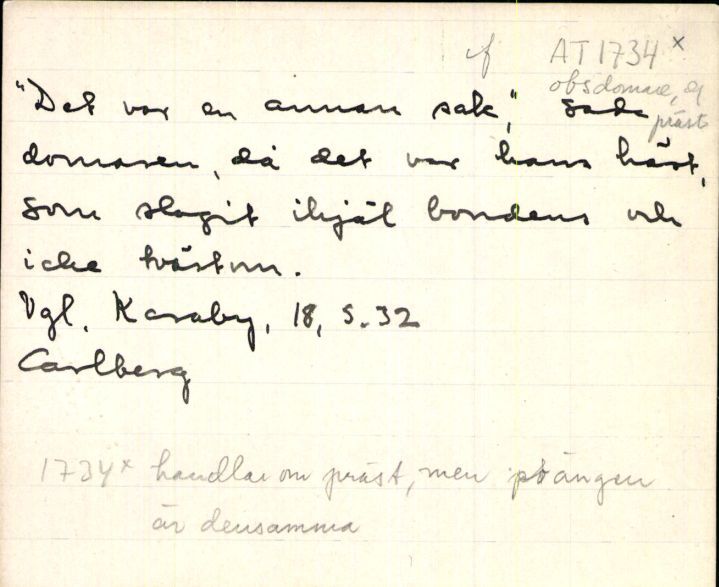 cf AT 1734 x
obs domare, ej
präst
"Det var en annan sak," sade
domaren, då det var hans häst,
som slagit ihjäl bondens och
icke tvärtom.
Vgl. Karaby, 18, s. 32
Carlberg
1734 x handlar om präst, men poängen
är densamma